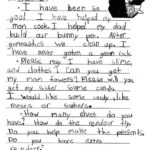 I have been so
good I have helped my
mom cook. I helped my dad
build our bunny pen. After
gymnastics we clean up. I
have never gotten a yellow
• Please may I have slime,
and clothes? Can you get
my mom flowers? Please will you
get my sister some candy.
would like some candy like
or
• How many elves do you
have? How do the reindeer fly.
Do you help make the presents.
Do you have extra
reindeer?